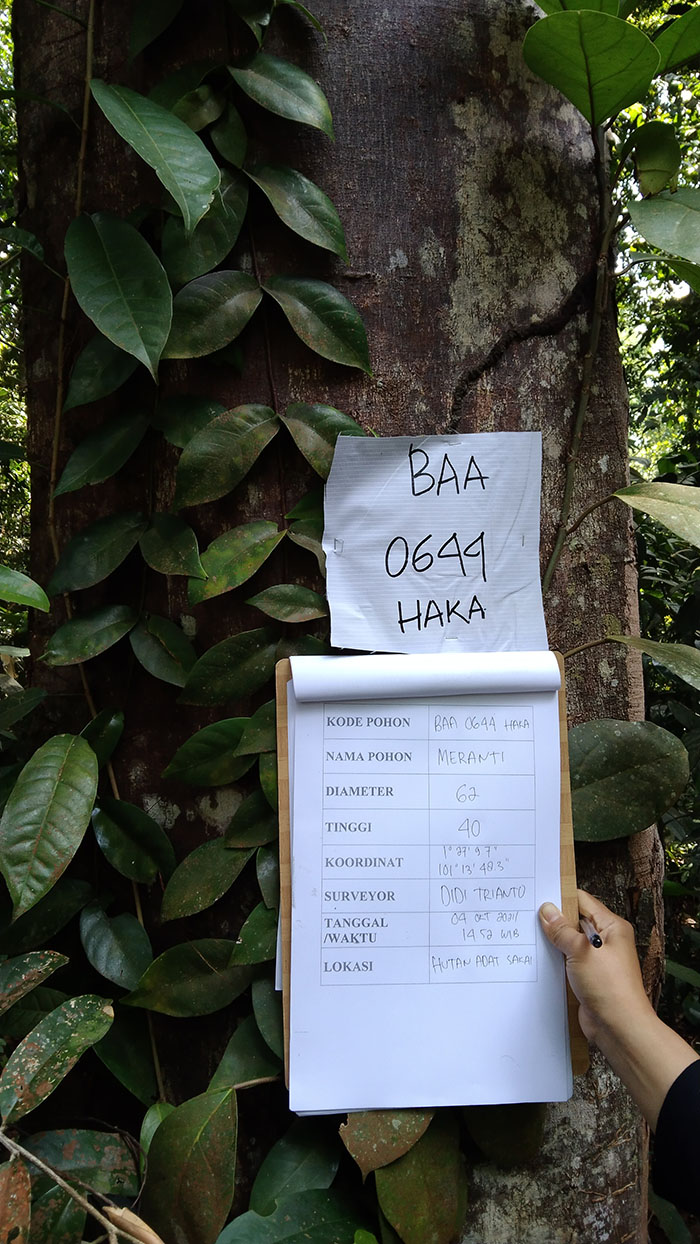 BAA
0644
HAKA
KODE POHON BAA 0644 HAKA
NAMA POHON MERANTI
DIAMETER 62
TINGGI 40
KOORDINAT 1° 27' 9.7"
101° 13' 48.3"
SURVEYOR DIDI TRIANTO
TANGGAL 04 OKT 2021
/WAKTU 14.52 WIB
LOKASI HUTAN ADAT SAKAI